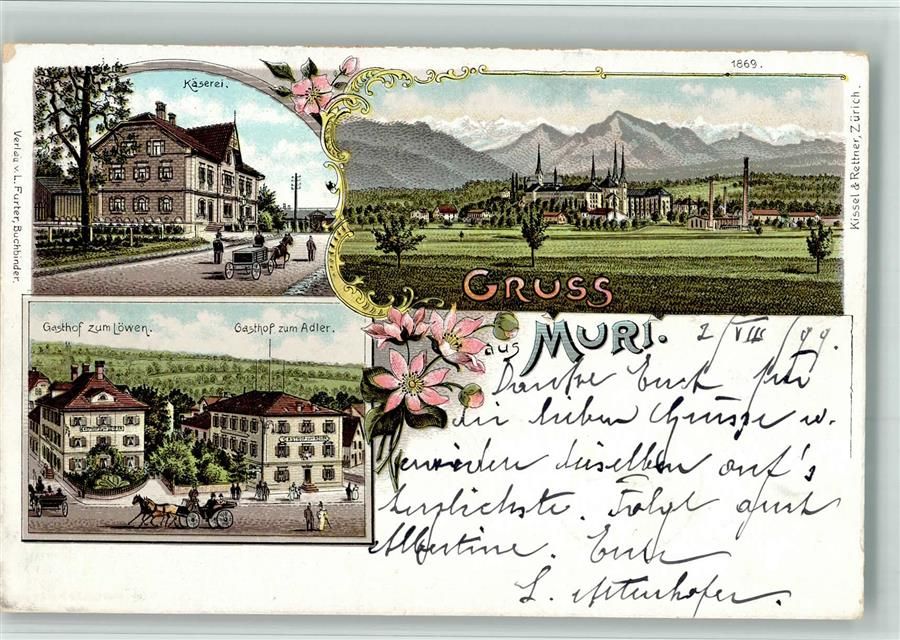 Käserei.
1869.
Verlag v. L. Furter, Buchbinder.
Kissel & Rettner, Zürich.
Gruss
aus Muri.
Gasthof zum Löwen.
Gasthof zum Adler.
2/VIII/99.
Danke Euch für
die lieben Grüsse u.
erwidere dieselben auf's
herzlichste. Folgt
Albertine. Eure
L. Altenhofer.